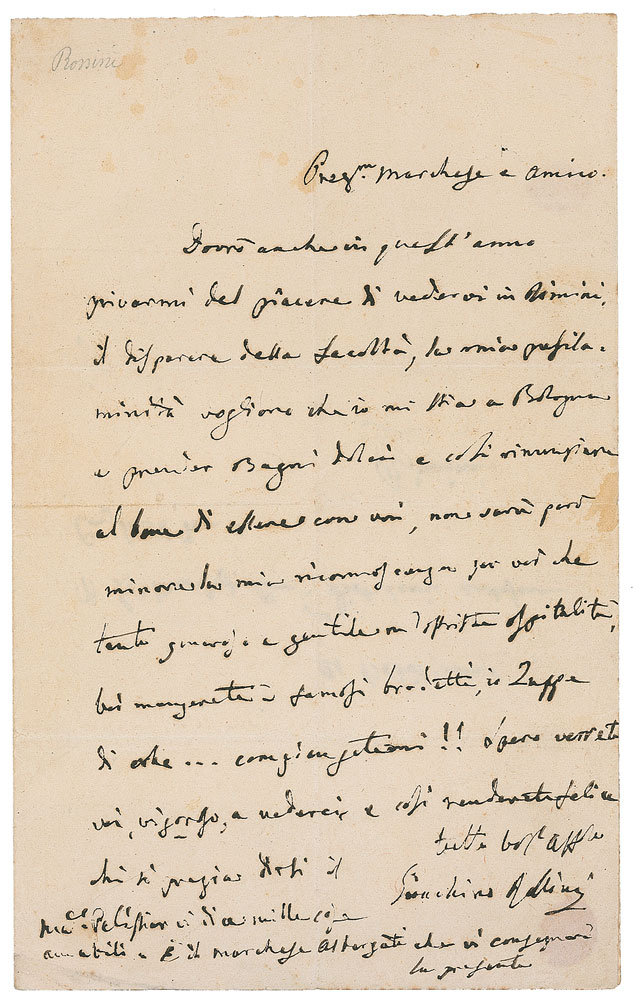 Rossini
Preg.mo Marchese e Amico.
Dovrò anche in quest'anno
privarmi del piacere di vedervi in Rimini,
il disparere della facoltà, la mia pusila-
nimità vogliono che io mi stia a Bologna
a prender Bagni dolci e così rinunziare
al bene di essere con voi, non sarà però
minore la mia riconoscenza per voi che
tanta generosa e gentile m'offriste ospitalità,
voi mangerete i famosi brodetti, io Zuppe
di erbe ... compiangetemi!! Spero verrete
voi, vigoroso, a vederci e così renderete felice
chi si pregia dirsi il tutto vos.o Aff.o
Gioachino Rossini
Mad.e Pelissier vi dice mille cose
amabili e è il Marchese che vi consegnerà
la presente